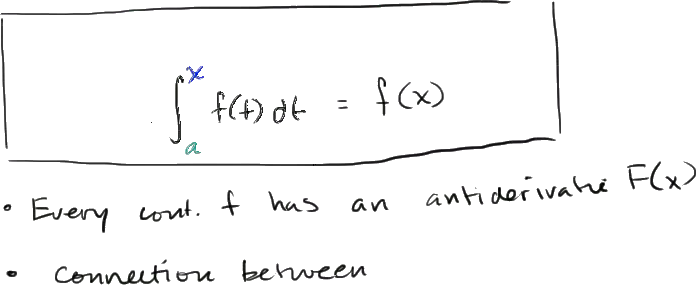 ∫_a^x f(t) dt = f(x)
• Every cont. f has an antiderivative F(x)
• Connection between